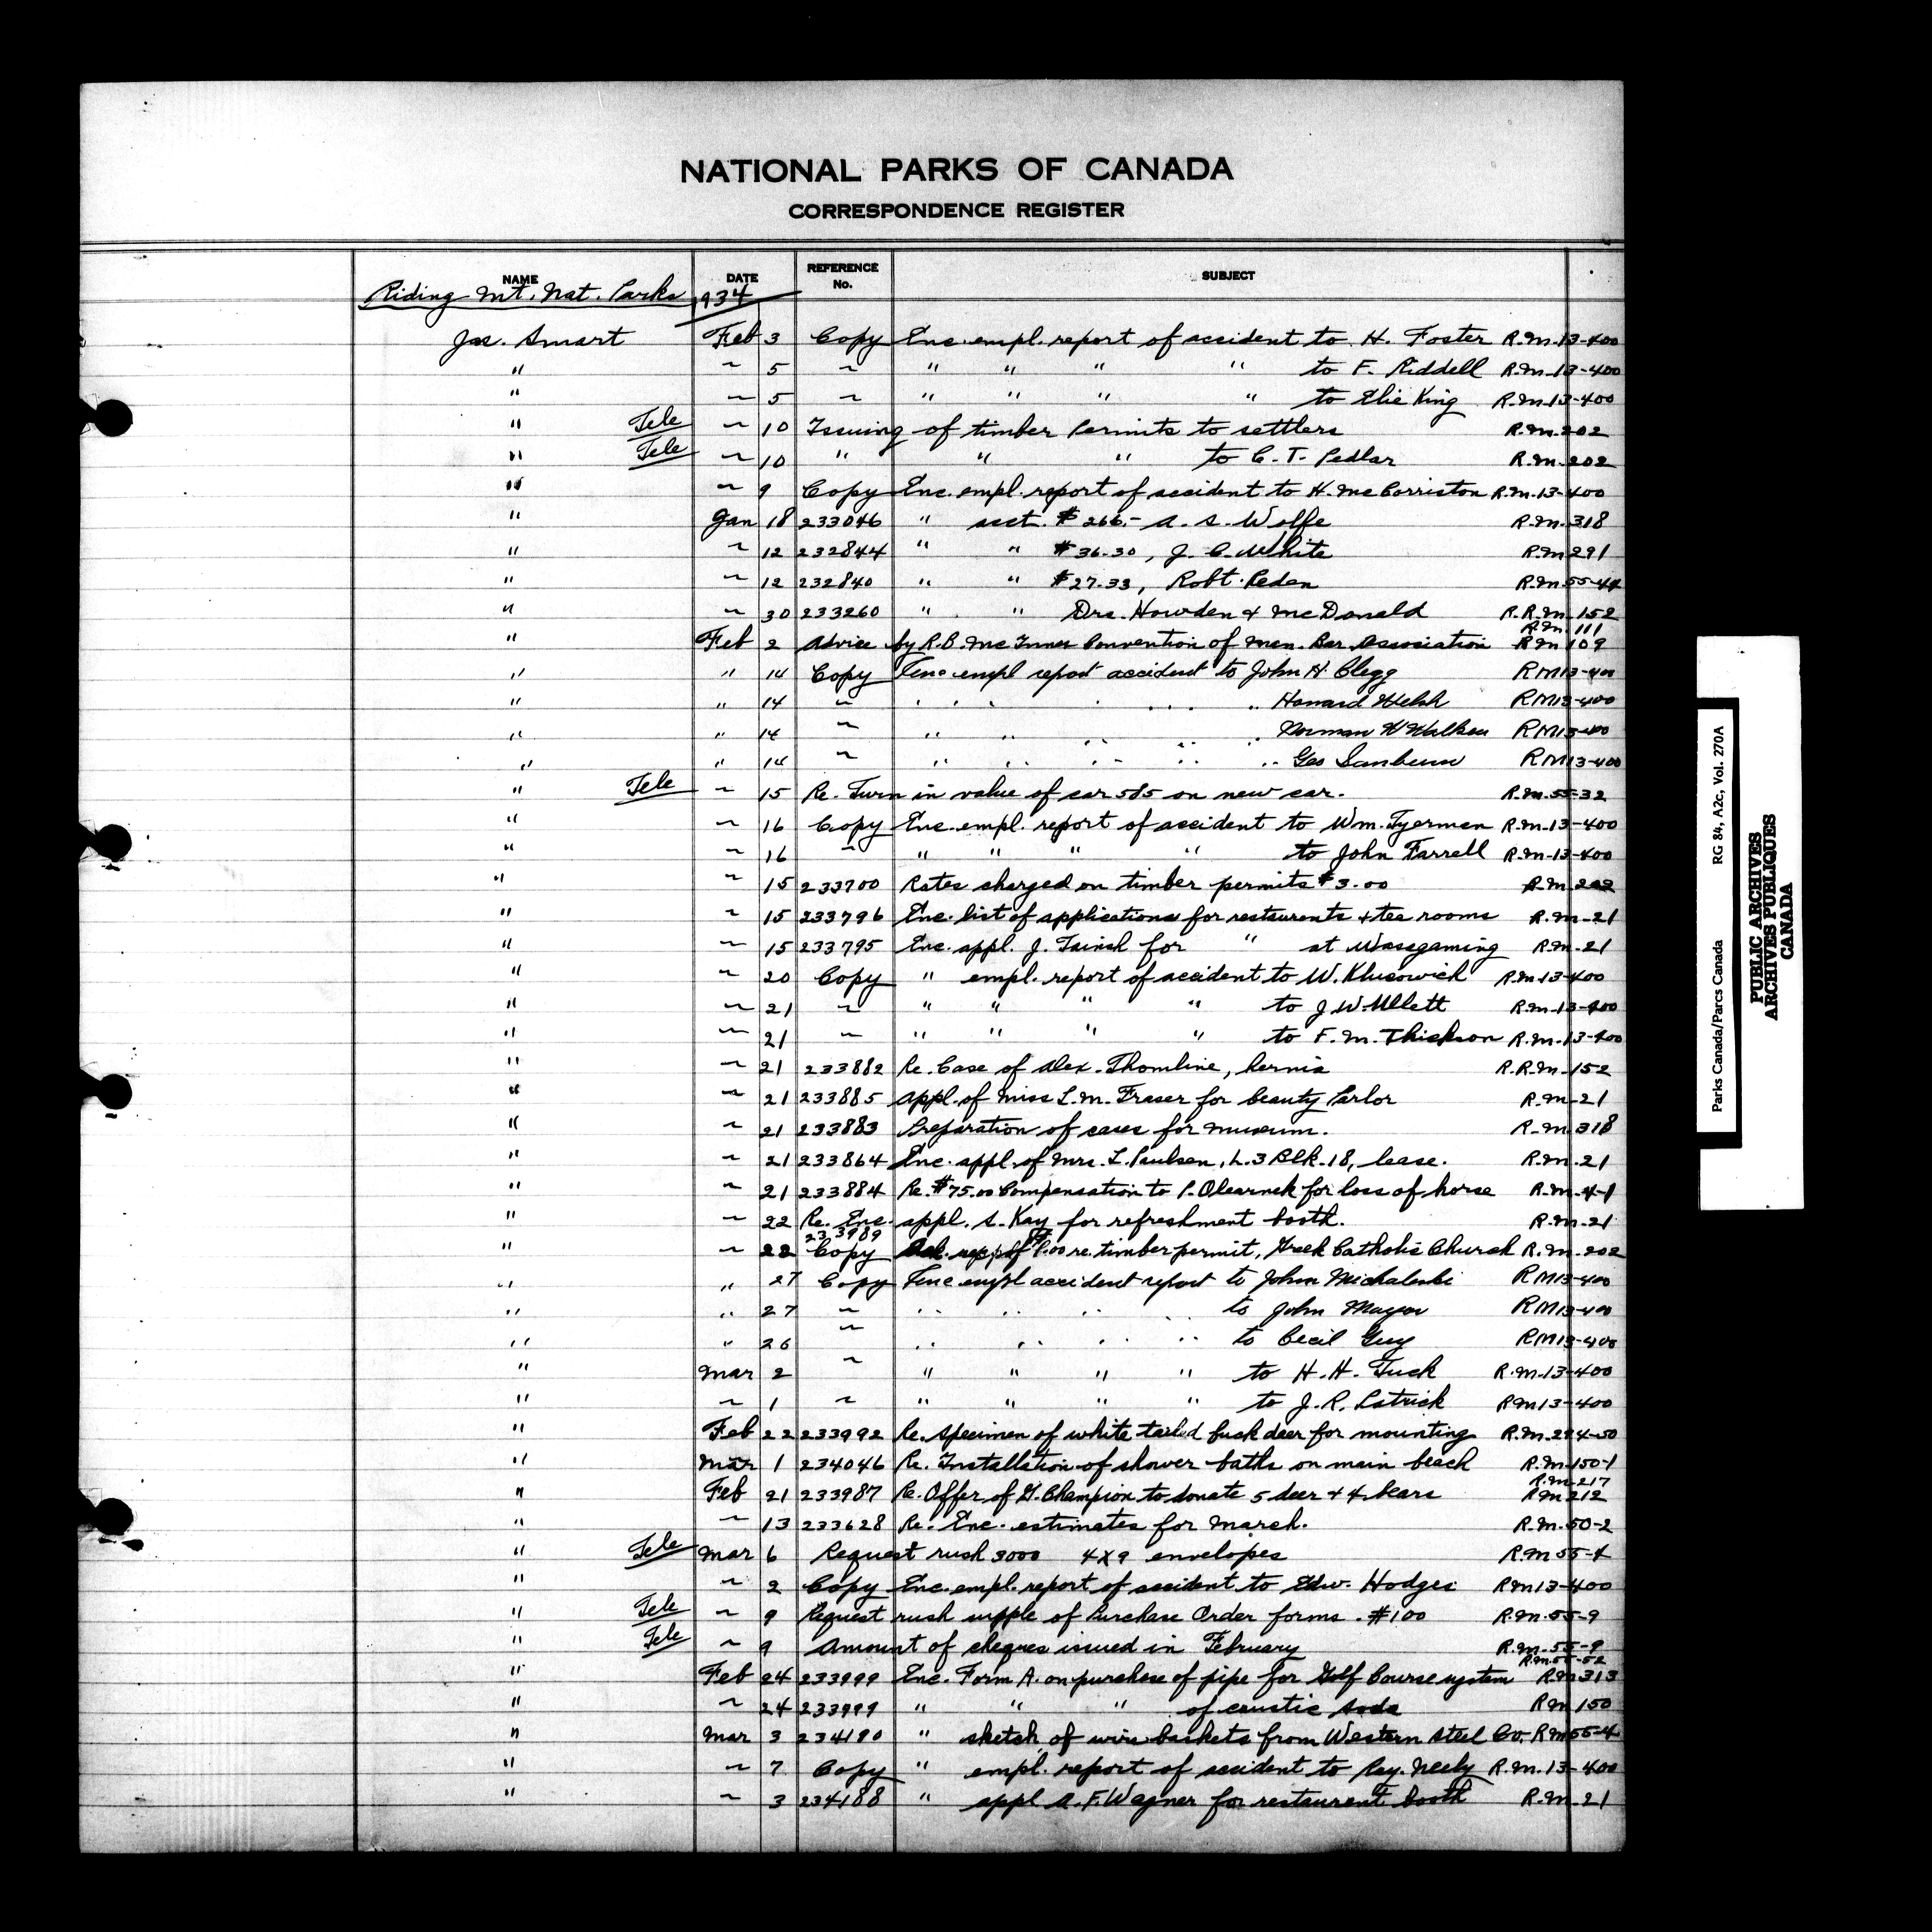 NATIONAL PARKS OF CANADA
CORRESPONDENCE REGISTER
NAME DATE REFERENCE No. SUBJECT
Riding Mt. Nat. Parks 1934
Jas. Smart Feb 3 Copy Enc. empl. report of accident to H. Foster R.M.13-400
" ~ 5 ~ " " " " to F. Riddell R.M.13-400
" ~ 5 ~ " " " " to Elie King R.M.13-400
" Tele ~ 10 Issuing of timber Permits to settlers R.M.202
" Tele ~ 10 " " " to C. T. Pedlar R.M.202
" ~ 9 Copy Enc. empl. report of accident to H. McCorriston R.M.13-400
" Jan 18 233046 " acct. $266.- A. S. Wolfe R.M.318
" ~ 12 232844 " " $36.30, J. C. White R.M.291
" ~ 12 232840 " " $27.33, Robt. Peden R.M.55-44
" ~ 30 233260 " " Drs. Howden & McDonald R.R.M.152
R.M.111
" Feb 2 Advice by R.B. McInnes Convention of Man. Bar Association R.M.109
" " 14 Copy Enc empl report accident to John H Clegg RM13-400
" " 14 ~ " " " " " " Howard Welsh RM13-400
" " 14 ~ " " " " " Norman W Walker RM13-400
" " 14 ~ " " " " " Geo Sanburn RM13-400
" Tele ~ 15 Re. Turn in value of car 585 on new car. R.M.55-32
" ~ 16 Copy Enc. empl. report of accident to Wm. Tyerman R.M.13-400
" ~ 16 ~ " " " " to John Farrell R.M.13-400
" ~ 15 233700 Rates charged on timber permits $3.00 R.M.202
" ~ 15 233796 Enc. list of applications for restaurants & tea rooms R.M.21
" ~ 15 233795 Enc. appl. J. Tainsh for " at Wasagaming R.M.21
" ~ 20 Copy " empl. report of accident to W. Klusowich R.M.13-400
" ~ 21 ~ " " " " to J. W. Ullett R.M.13-400
" ~ 21 ~ " " " " to F. M. Thickson R.M.13-400
" ~ 21 233882 Re. Case of Alex. Thomline, hernia R.R.M.152
" ~ 21 233885 Appl. of Miss L. M. Fraser for beauty Parlor R.M.21
" ~ 21 233883 Preparation of cases for museum. R.M.318
" ~ 21 233864 Enc. appl. of Mrs. L. Paulsen, L.3 Blk.18, lease. R.M.21
" ~ 21 233884 Re. $75.00 Compensation to P. Olearnek for loss of horse R.M.4-1
" ~ 22 Re. Enc. appl. S. Kay for refreshment booth. R.M.21
233989
" ~ 22 Copy re. timber permit, Greek Catholic Church R.M.202
" " 27 Copy Enc empl accident report to John Michaleski RM13-400
" " 27 ~ " " " " to John Magee RM13-400
" " 26 ~ " " " " to Cecil Guy RM13-400
" Mar 2 ~ " " " " to H. H. Tuck R.M.13-400
" ~ 1 ~ " " " " to J. R. Patrick R.M.13-400
" Feb 22 233992 Re. Specimen of white tailed buck deer for mounting R.M.294-50
" Mar 1 234046 Re. Installation of shower baths on main beach R.M.150-1
R.M.217
" Feb 21 233987 Re. Offer of G. Champion to donate 5 deer & 4 bears R.M.212
" ~ 13 233628 Re. Enc. estimates for March. R.M.50-2
" Tele Mar 6 Request rush 3000 4x9 envelopes R.M.55-4
" ~ 2 Copy Enc. empl. report of accident to Edw. Hodges R.M.13-400
" Tele ~ 9 Request rush supple of Purchase Order forms. #100 R.M.55-9
" Tele ~ 9 Amount of cheques issued in February R.M.55-9
R.M.55-52
" Feb 24 233999 Enc. Form A. on purchase of pipe for Golf Course system R.M.313
" ~ 24 233999 " " " of caustic soda R.M.150
" Mar 3 234190 " sketch of wire baskets from Western Steel Co. R.M.55-4
" ~ 7 Copy " empl. report of accident to Ray. Neely R.M.13-400
" ~ 3 234188 " appl A. F. Wagner for restaurant booth R.M.21
Parks Canada/Parcs Canada RG 84, A2c, Vol. 270A
PUBLIC ARCHIVES
ARCHIVES PUBLIQUES
CANADA